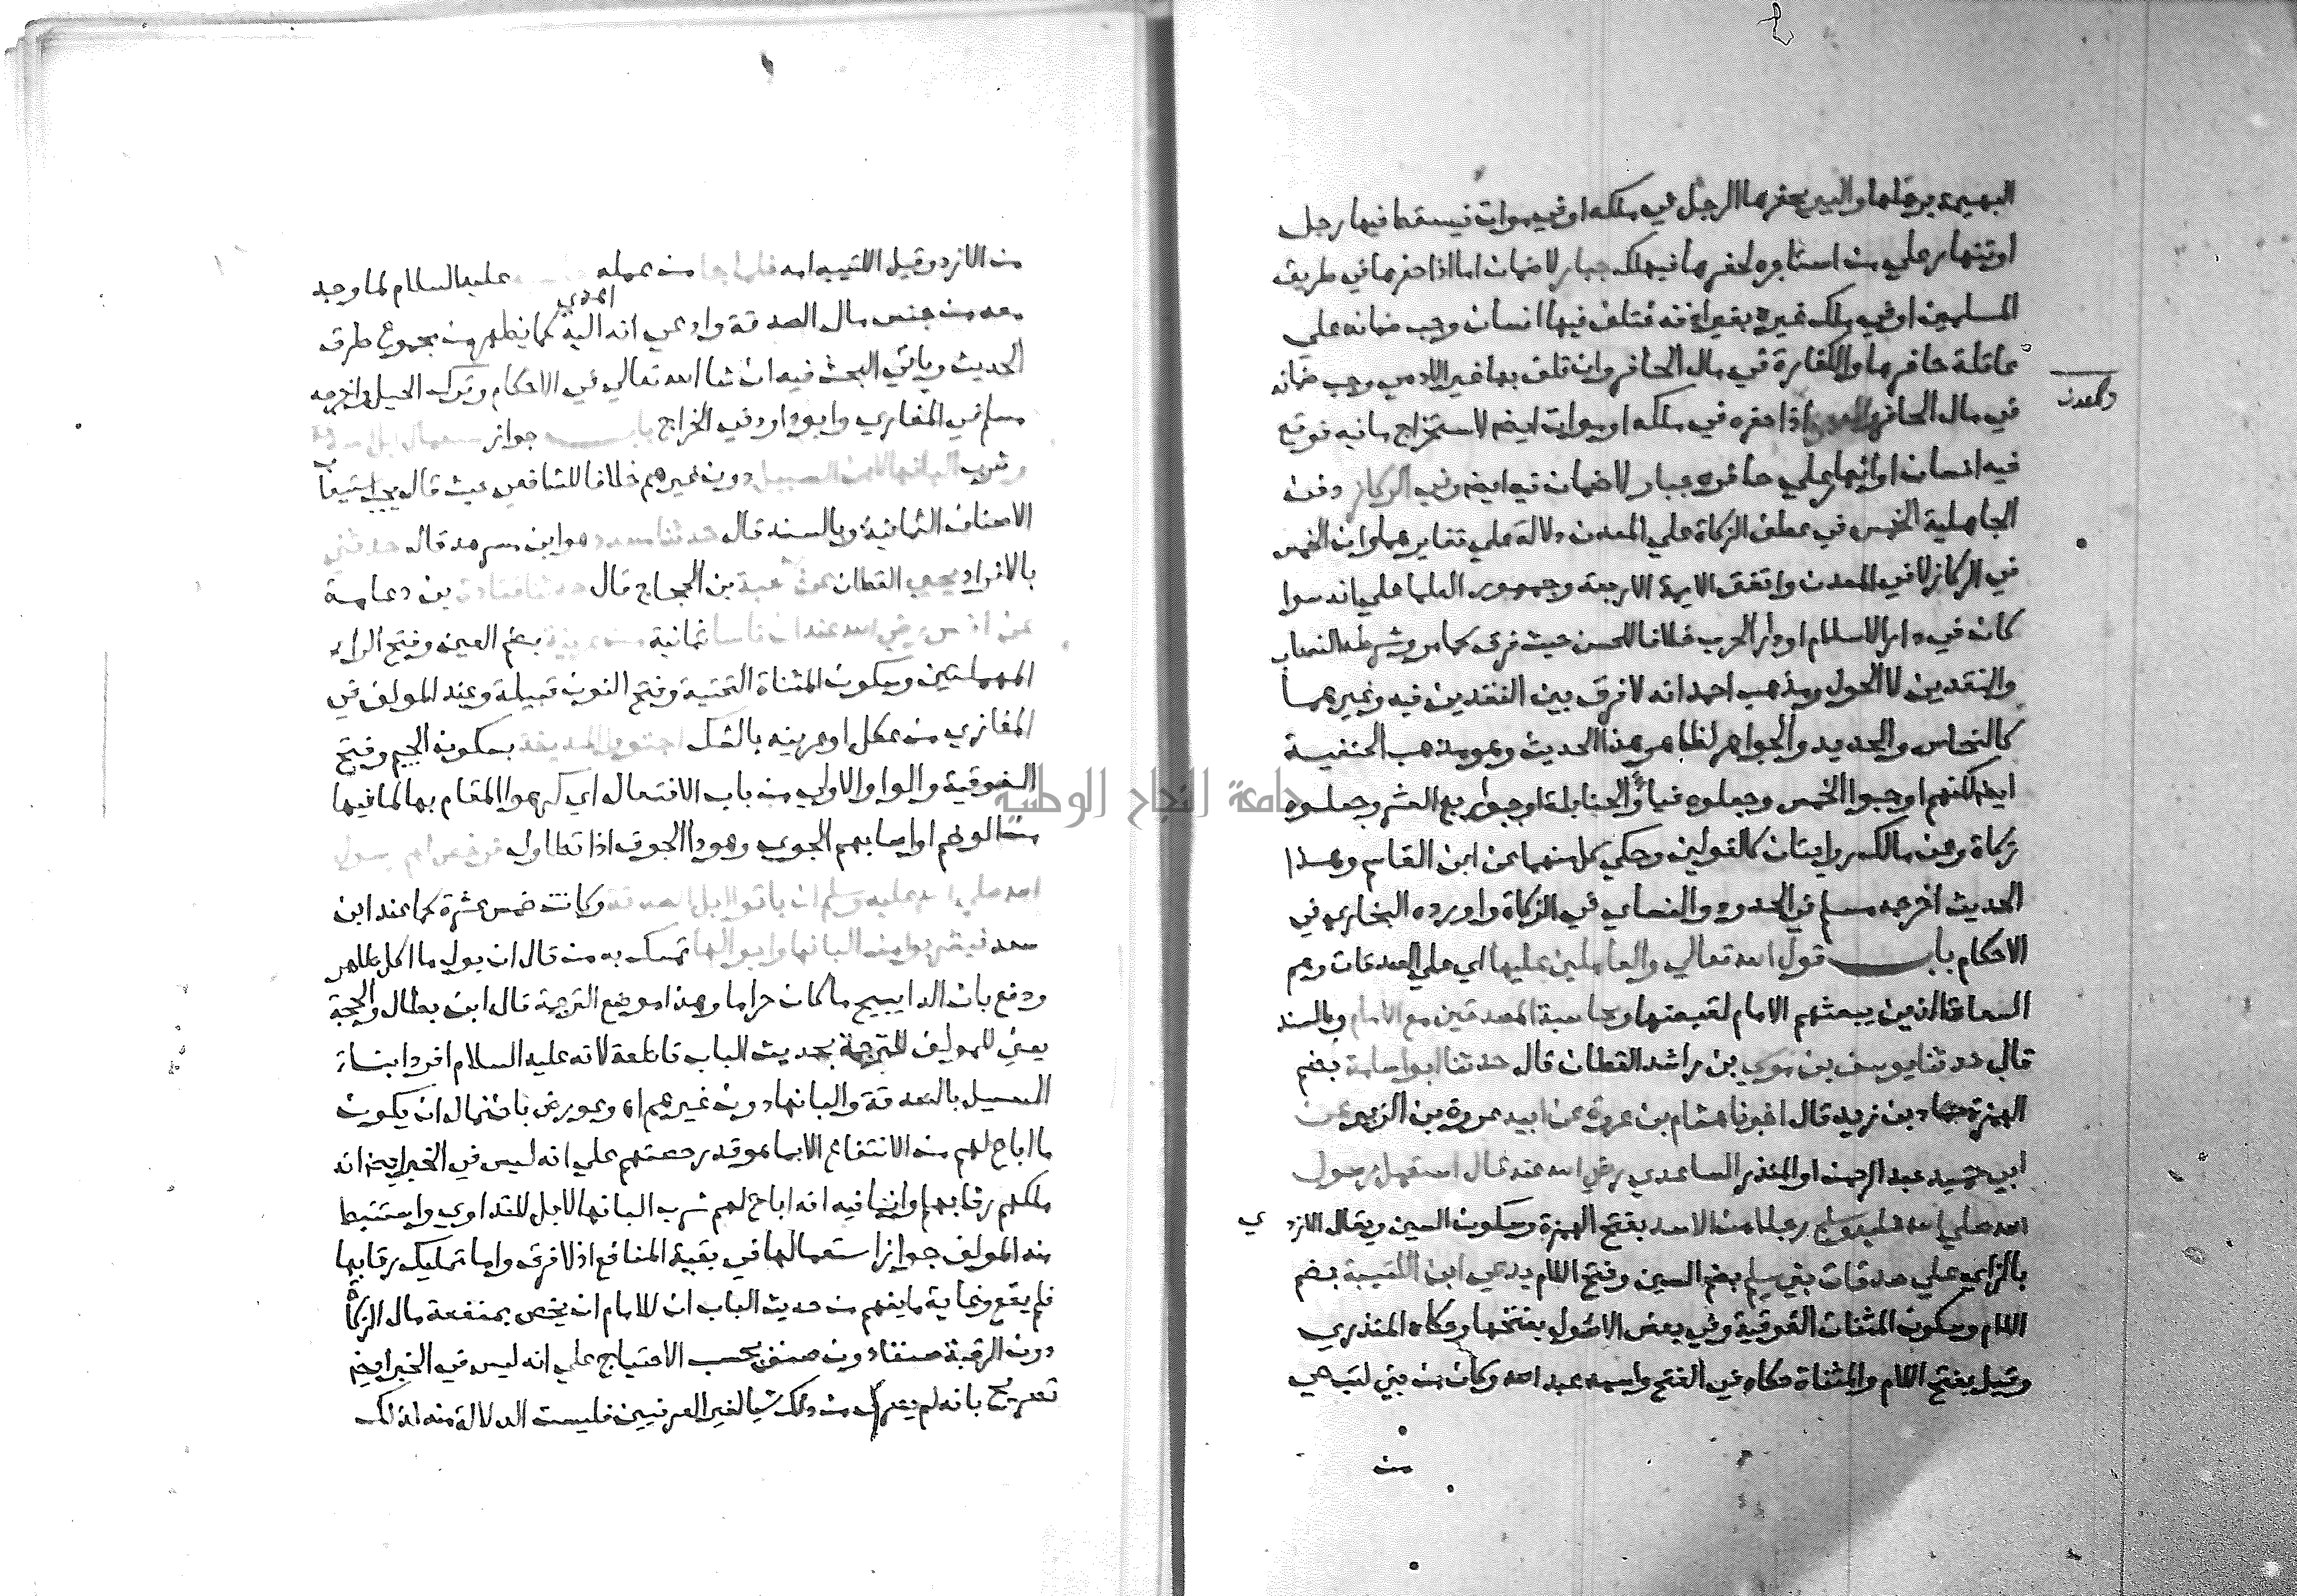 البهيمة برجلها والبير يحفرها الرجل في ملكه او في موات فيسقط فيها رجل
او تنهار علي من استاجره لحفرها فيهلك جبار لا ضمان اما اذا حفرها في طريق
المسلمين او في ملك غيره بغير اذنه فتلف فيها انسان وجب ضمانه علي
عاقلة حافرها والكفارة في مال الحافر وان تلف بها غير الادمي وجب ضمانه
والمعدن
في مال الحافر اذا حفره في ملكه او موات ايضا لاستخراج ما فيه فوقع
فيه انسان او انهار علي حافره جبار لا ضمان فيه ايضا وفي الركاز دفن
الجاهلية الخمس في عطف الزكاة علي المعدن دلالة علي تغايرهما وان الخمس
في الركاز لا في المعدن واتفق الايمة الاربعة وجمهور العلما علي انه سوا
كان في دار الاسلام او دار الحرب خلافا للحسن حيث فرق كما مر وشرطه النصاب
والنقدين لا الحول ومذهب احمد انه لا فرق بين النقدين فيه وغيرهما
كالنحاس والحديد والجواهر لظاهر هذا الحديث وهو مذهب الحنفية
ايضا لكنهم اوجبوا الخمس وجعلوه فيا والحنابلة اوجبوا ربع العشر وجعلوه
زكاة وعن مالك روايتان كالقولين وحكي كل منهما عن ابن القاسم وهذا
الحديث اخرجه مسلم في الحدود والنساي في الزكاة واورده البخاري في
الاحكام باب قول الله تعالي والعاملين عليها اي علي الصدقات وهم
السعاة الذين يبعثهم الامام لقبضها ومحاسبة المصدقين مع الامام وبالسند
قال حدثنا يوسف بن موسي بن راشد القطان قال حدثنا ابو اسامة بضم
الهمزة حماد بن زيد قال اخبرنا هشام بن عروة عن ابيه عروة بن الزبير عن
ابي حميد عبد الرحمن او المنذر الساعدي رضي الله عنه قال استعمل رسول
الله صلي الله عليه وسلم رجلا من الاسد بفتح الهمزة وسكون السين ويقال الازدي
بالزاي علي صدقات بني سليم بضم السين وفتح اللام يدعي ابن اللتبية بضم
اللام وسكون المثنات الفوقية وفي بعض الاصول بفتحها وحكاه المنذري
وقيل بفتح اللام والمثناة حكاه في الفتح واسمه عبد الله وكان من بني لتب حي
من
من الازد وقيل اللتبية امه فلما جا من عمله حاسبه عليه السلام لما وجد
معه من جنس مال الصدقة وادعي انه اهدي اليه كما يظهر من مجموع طرق
الحديث وياتي البحث فيه ان شا الله تعالي في الاحكام وترك الحيل واخرجه
مسلم في المغازي وابو داود في الخراج باب جواز استعمال ابل الصدقة
وشرب البانها لابن السبيل دون غيرهم خلافا للشافعي حيث قال يجب استيعاب
الاصناف الثمانية وبالسند قال حدثنا مسدد هو ابن مسرهد قال حدثني
بالافراد يحيي القطان عن شعبة بن الحجاج قال حدثنا قتادة بن دعامة
عن انس رضي الله عنه ان ناسا ثمانية من عرينة بضم العين وفتح الراء
المهملتين وسكون المثناة التحتية وفتح النون قبيلة وعند المولف في
المغازي من عكل او عرينه بالشك اجتووا المدينة بسكون الجيم وفتح
الفوقية والواو الاولي من باب الافتعال اي كرهوا المقام بها لما فيها
او اصابهم الجوي وهو دا الجوف اذا تطاول فرخص لهم رسول
الله صلي الله عليه وسلم ان ياتوا ابل الصدقة وكانت خمس عشرة كما عند ابن
سعد فيشربوا من البانها وابوالها تمسك به من قال ان بول ما اكل طاهر
ودفع بان الدا يبيح ما كان حراما وهذا موضع الترجمة قال ابن بطال والحجة
يعني للمولف للترجمة بحديث الباب قاطعة لانه عليه السلام افرد ابناء
السبيل بالصدقة والبانها دون غيرهم اه وعورض باحتمال ان يكون
ما اباح لهم من الانتفاع الا بما هو قدر حصتهم علي انه ليس في الخبر ايضا انه
ملكهم رقابها وانما فيه انه اباح لهم شرب البانها الابل للتداوي واستنبط
منه المولف جواز استعمالها في بقية المنافع اذ لا فرق واما تمليك رقابها
فلم يقع ونهاية ما يفهم من حديث الباب ان للامام ان يخص بمنفعة مال الزكاة
دون الرقبة صنفا دون صنف بحسب الاحتياج علي انه ليس في الخبر ايضا
تصريح بانه لم يصرف من ذلك شيا لغير العرنيين فليست الدلالة منه لذلك
جامعة النجاح الوطنية